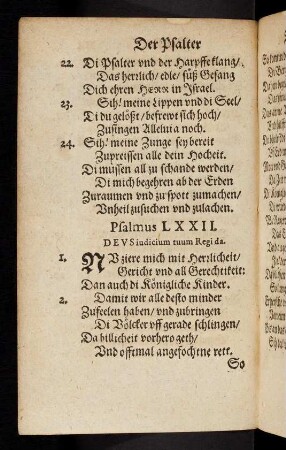 Der Psalter
22. Di Psalter vnd der Harpffe klang/
Das herrlich/ edle/ süß Gesang
Dich ehren HERR in Israel.
23. Sih! meine Lippen vnd di Seel/
Ti du gelößt/ befrewt sich hoch/
Zusingen Alleluia noch.
24. Sih! meine Zunge sey bereit
Zupreissen alle dein Hocheit.
Di müssen all zu schande werden/
Di mich begehren ab der Erden
Zuraumen vnd zu spott zumachen/
Vnheil zusuchen vnd zulachen.
Psalmus LXXII.
DEVS iudicium tuum Regi da.
1. NV ziere mich mit Herrlicheit/
Gericht vnd all Gerechtikeit:
Dan auch di Königliche Kinder.
2. Damit wir alle desto minder
Zufeelen haben/ vnd zubringen
Di Völcker vff gerade schlingen/
Da billicheit vorhero geth/
Vnd offtmal angefochtne rett.
So